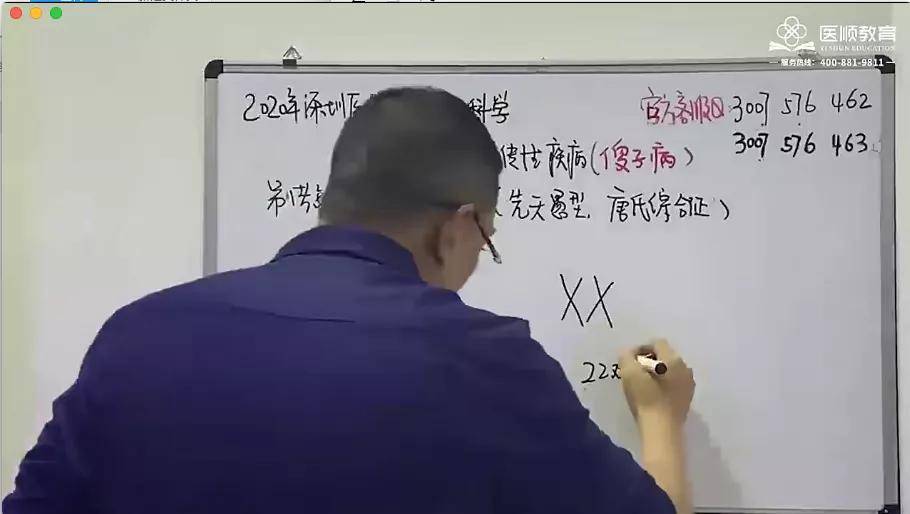 医顺教育
YI SHUN EDUCATION
服务热线：400-881-9811
2020年深圳医 科学
官方客服Q: 3007 576 462
3007 576 463
传性疾病(傻子病)
先天愚型、唐氏综合征)
XX
22